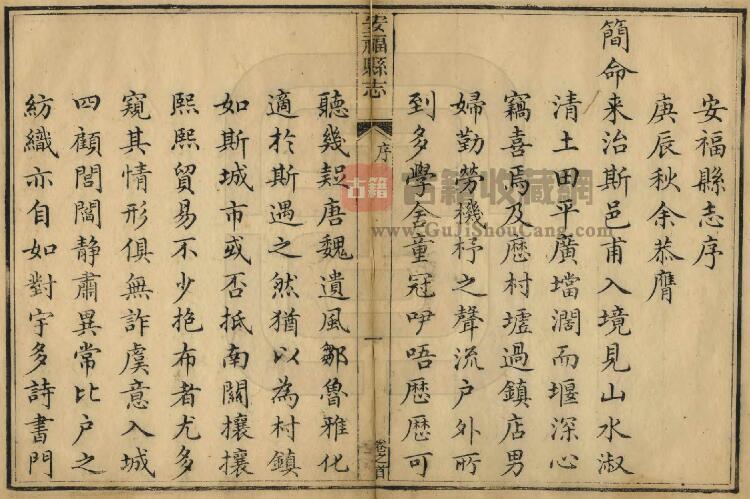 安福縣志序
庚辰秋余恭膺
簡命来治斯邑甫入境見山水淑
清土田平廣壋濶而堰深心
竊喜焉及歴村墟過鎮店男
婦勤勞機杼之聲流户外所
到多學舍童冠咿唔歴歴可
安福縣志
序
一
卷之首
聽幾疑唐魏遺風鄒魯雅化
適於斯遇之然猶以為村鎮
如斯城市或否抵南關攘攘
熙熙貿易不少抱布者尤多
窺其情形俱無詐虞意入城
四顧閭閻静肅異常比户之
紡織亦自如對宇多詩書門
古籍
古籍收藏網
www.GuJiShouCang.com